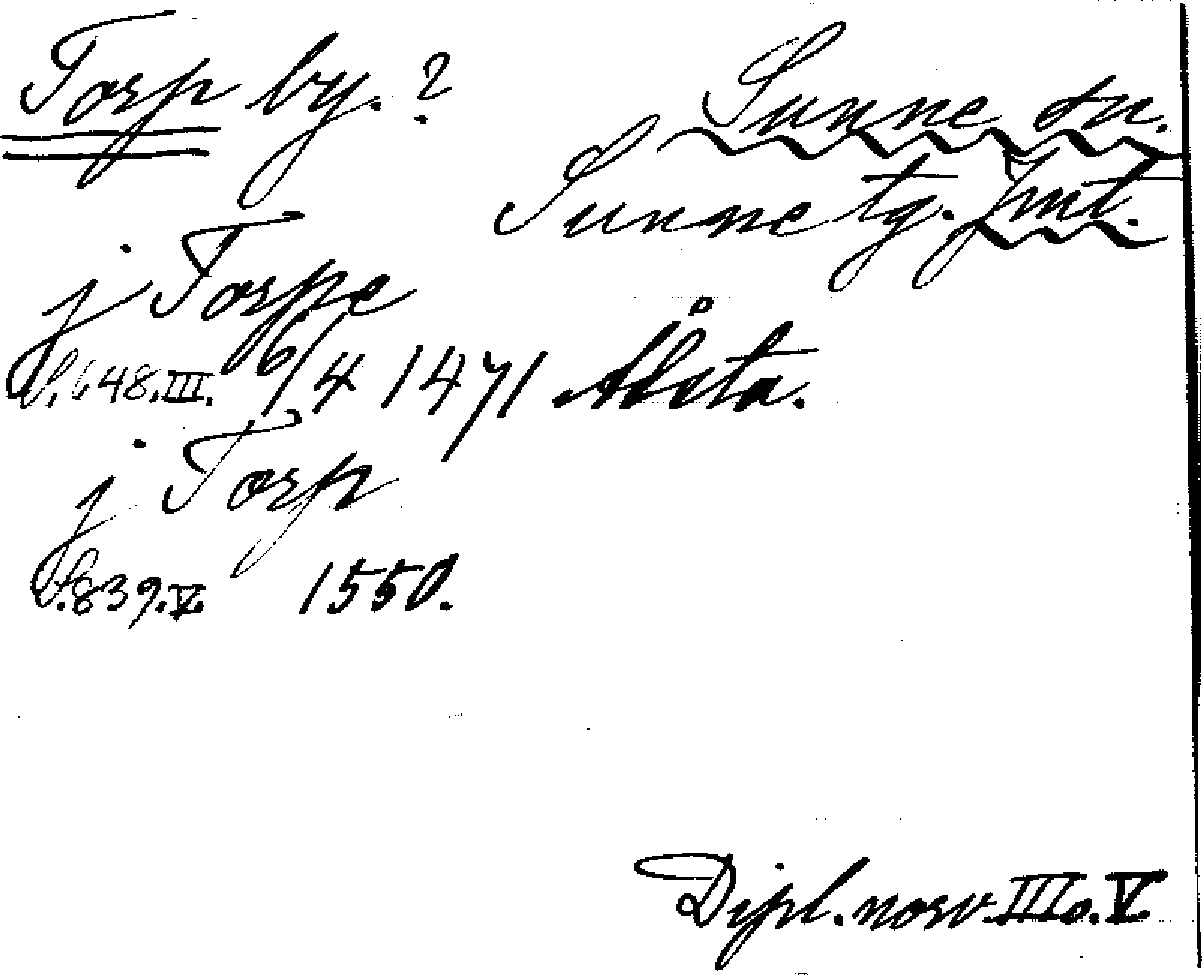 Torp by. ?
Sunne sn.
Sunne tg. Jmt.
j Torpe
S. 648. III. 6/4 1471 Åbsta.
j Torp
S. 839. V. 1550.
Dipl. norv. III o. V.